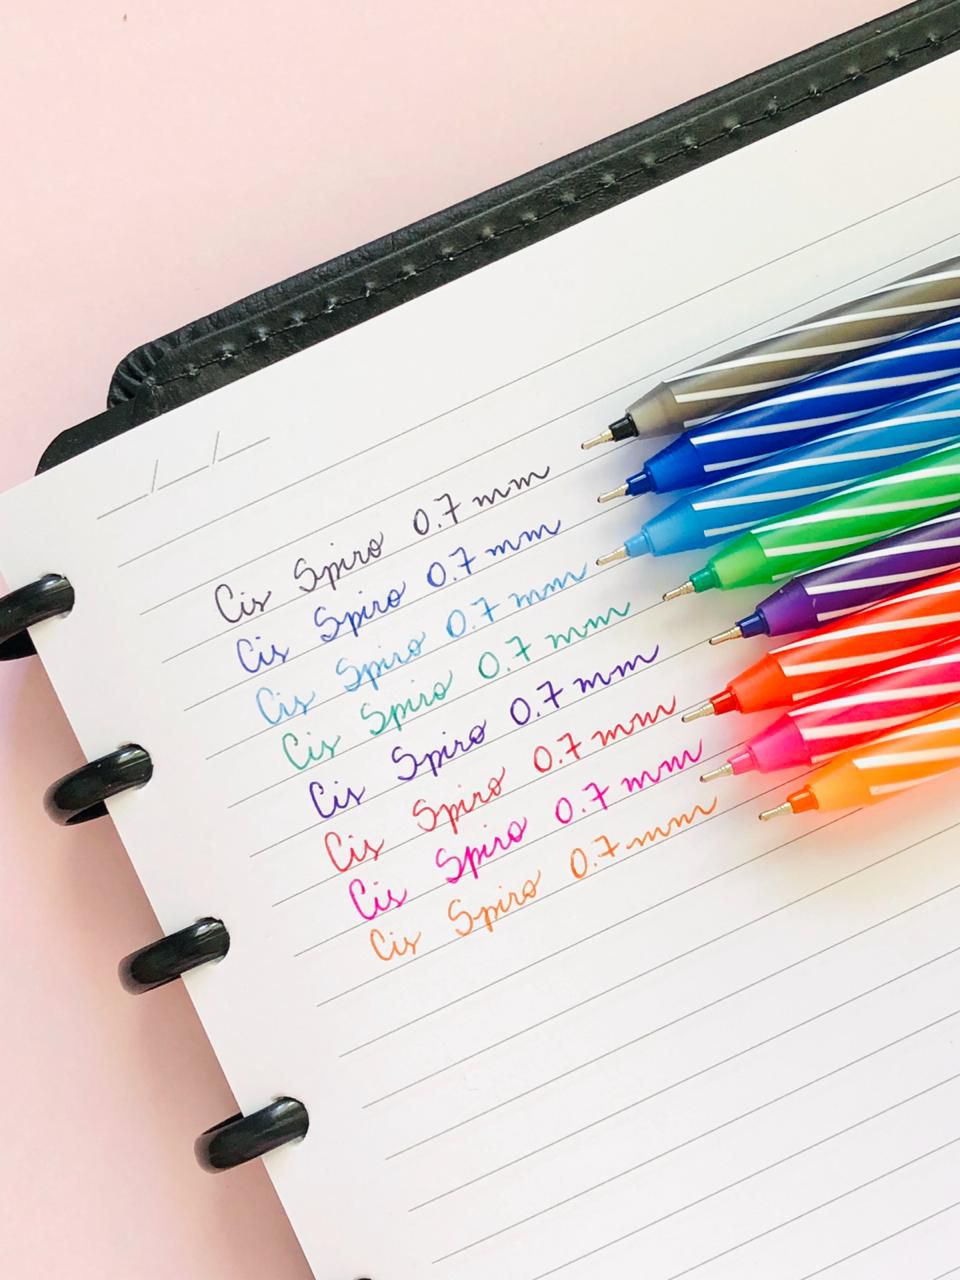 Cis Spiro 0.7 mm
Cis Spiro 0.7 mm
Cis Spiro 0.7 mm
Cis Spiro 0.7 mm
Cis Spiro 0.7 mm
Cis Spiro 0.7 mm
Cis Spiro 0.7 mm
Cis Spiro 0.7 mm